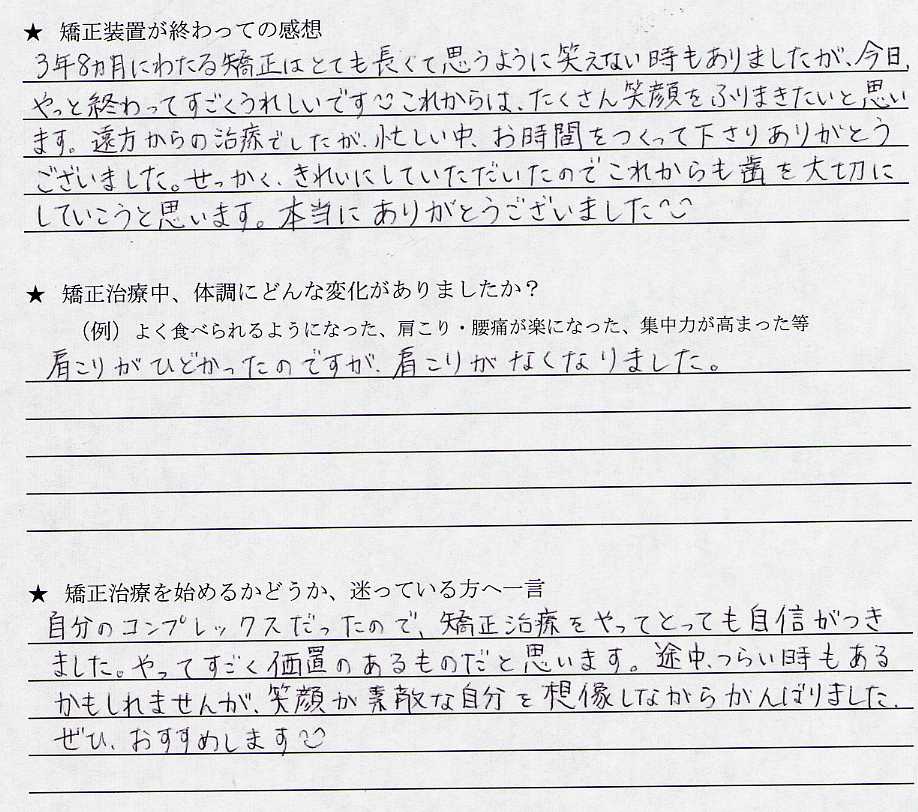 ★ 矯正装置が終わっての感想
3年8ヵ月にわたる矯正はとても長くて思うように笑えない時もありましたが、今日、
やっと終わってすごくうれしいです これからは、たくさん笑顔をふりまきたいと思い
ます。遠方からの治療でしたが、忙しい中、お時間をつくって下さりありがとう
ございました。せっかく、きれいにしていただいたのでこれからも歯を大切に
していこうと思います。本当にありがとうございました
★ 矯正治療中、体調にどんな変化がありましたか？
（例）よく食べられるようになった、肩こり・腰痛が楽になった、集中力が高まった等
肩こりがひどかったのですが、肩こりがなくなりました。
★ 矯正治療を始めるかどうか、迷っている方へ一言
自分のコンプレックスだったので、矯正治療をやってとっても自信がつき
ました。やってすごく価置のあるものだと思います。途中、つらい時もある
かもしれませんが、笑顔が素敵な自分を想像しながらがんばりました。
ぜひ、おすすめします